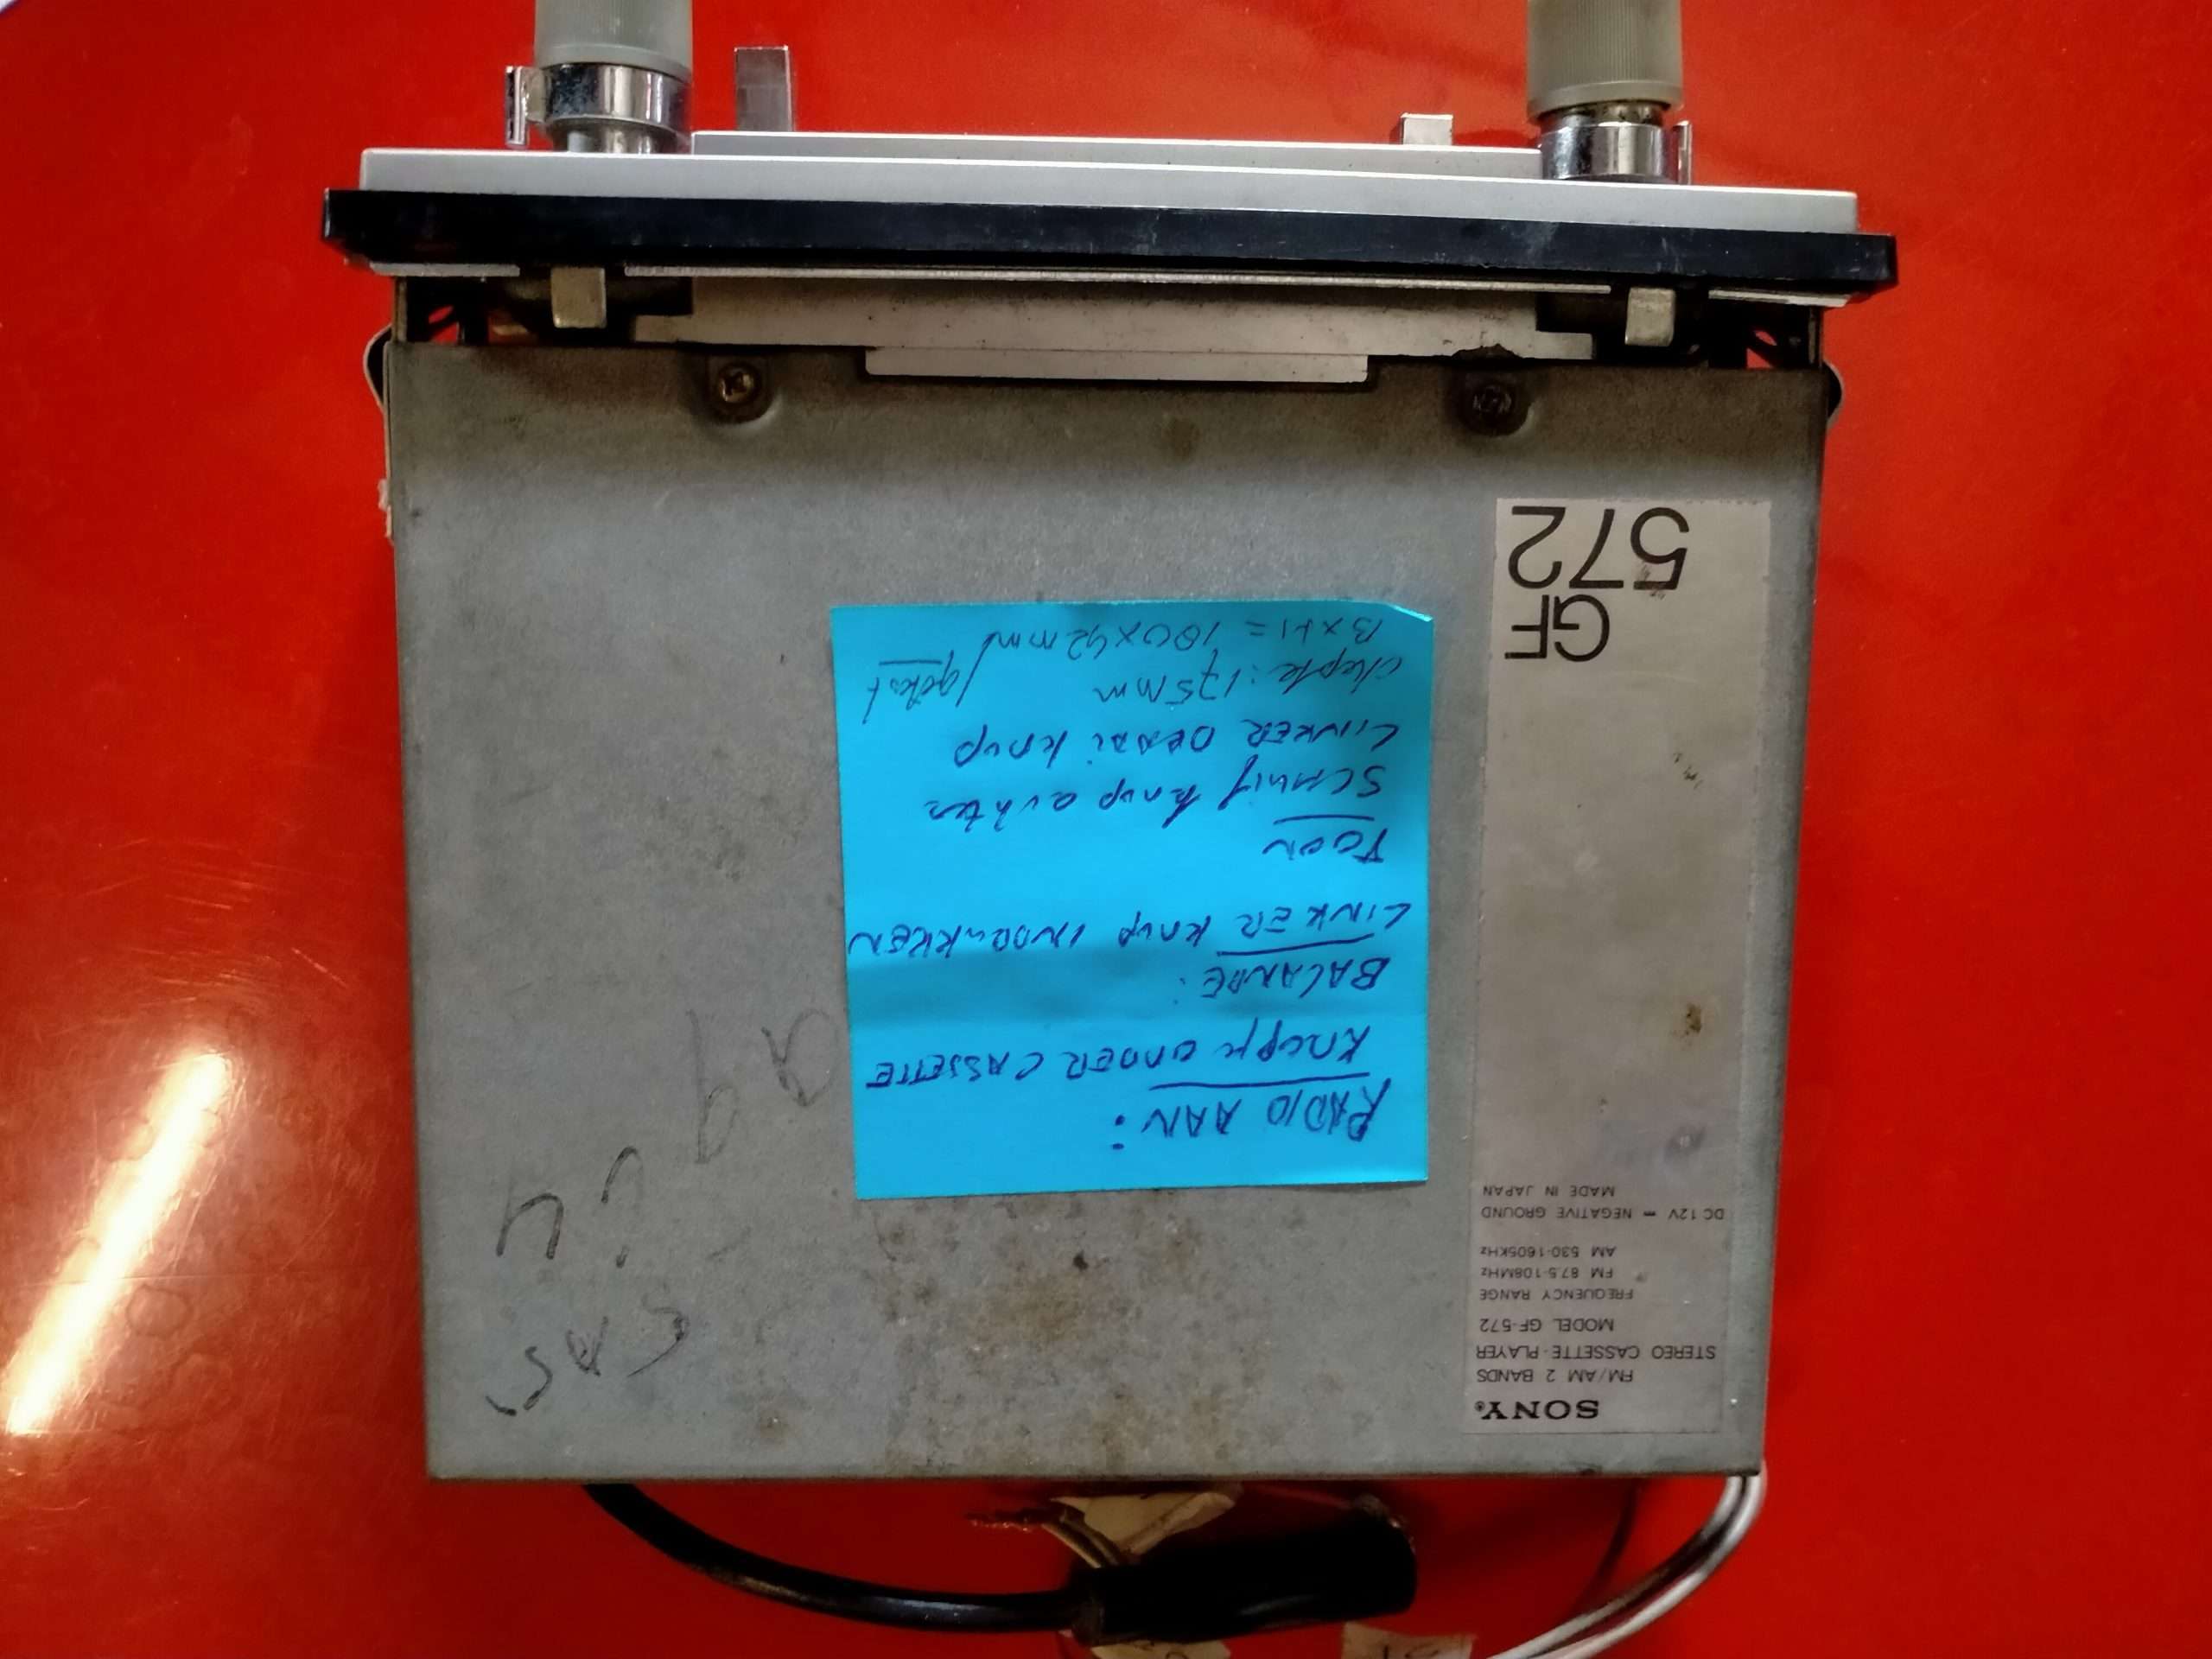 RADIO AAN:
KNOPJE ONDER CASSETTE
BALANDE:
LINKER KNOP INDRUKKEN
TOON
SCHUIF KNOP ACHTER
LINKER DRAAI KNOP
diepte: 175mm
BxH = 180x42mm
SONY
FM/AM 2 BANDS
STEREO CASSETTE-PLAYER
MODEL GF-572
FREQUENCY RANGE
FM 87.5-108MHz
AM 530-1605KHz
DC 12V ⎓ NEGATIVE GROUND
MADE IN JAPAN
GF
572